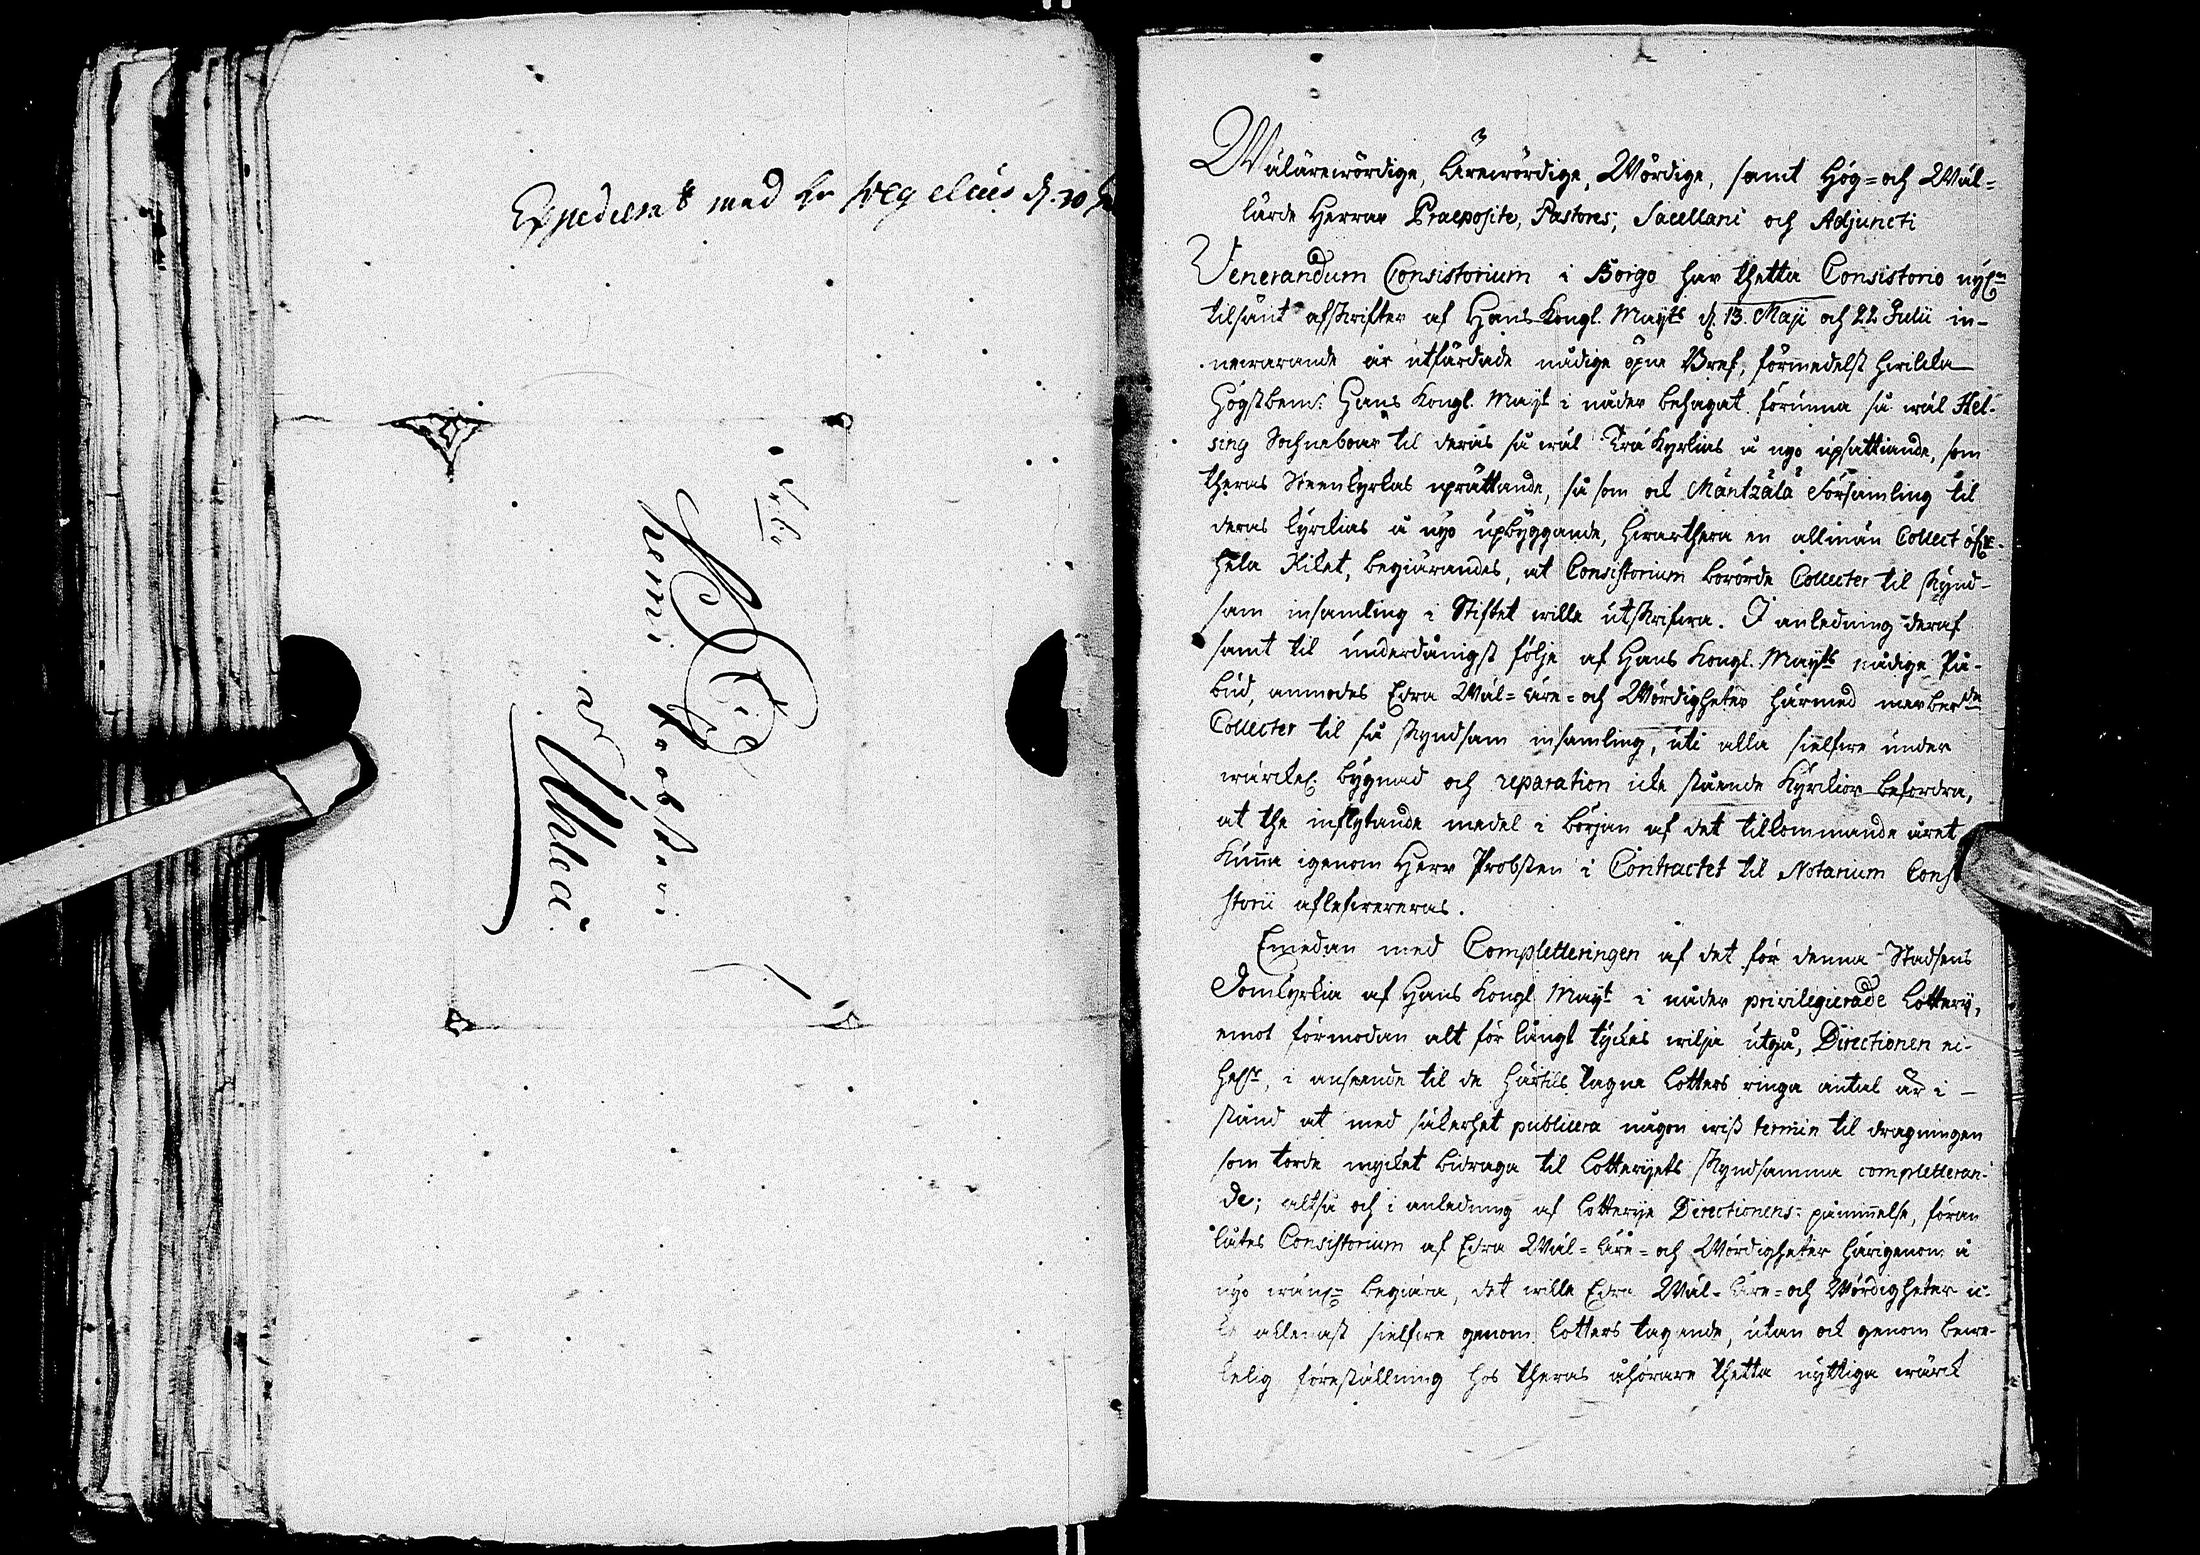 Expedierat med hr Wegelius d. 30
Wälärewördige, Ärewördige, Wördige, samt Hög- och Wäl-
lärde Herrar Praeposite, Pastores, Sacellani och Adjuncti
Venerandum Consistorium i Borgo har thetta Consistorio nyl:n
tilsänt afskrifter af Hans Kongl. Mayts d. 13. Maji och 22 Julii in-
newarande år utfärdade nådige öpne Bref, förmedelst hwilcka
Högstbem:te Hans Kongl. Mayt i nåder behagat förunna så wäl Hel-
sing Sochneboar til deras så wäl Träkyrkias å nyo upsättiande, som
theras Steenkyrkas uprättande, så som ock Mäntzälä Församling til
deras kyrckias å nyo upbyggande, hwarthera en allmän Collect öfwer
hela Riket, begiärandes, at Consistorium berörde Collecter til skynd-
sam insamling i Stiftet wille utskrifwa. I anledning deraf
samt til underdånigst följe af Hans Kongl. Mayts nådige På-
bud, anmodas Edra Wäl- Äre- och Wördigheter härmed merber:de
Collecter til så skyndsam insamling, uti alla sielfwe under
wärckel. bygnad och reparation icke stående Kyrckior befordra,
at the inflytande medel i början af det tilkommande året
kunna igenom Herr Probsten i Contractet til Notarium Consi
storii aflefwereras.
Emedan med Completteringen af det för denna Stadsens
Domkyrkia af Hans Kongl Mayt i nåder privilegierade Lottery,
emot förmodan alt för långt tyckes wilja utgå, Directionen ei
heller, i anseende til de härtils tagna Lotters ringa antal är i
stånd at med säkerhet publicera någon wiss termin til dragningen
som torde mycket bidraga til Lotteryets skyndsamma completteran-
de; altså och i anledning af Lotterye Directionens påminnelse, föran
låtes Consistorium af Edra Wäl- Äre- och Wördigheter härigenom å
nyo wänl:n begiära, det wille Edra Wäl- Äre- och Wördigheter ic-
ke allenast sielfwe genom Lotters tagande, utan ock genom bewe-
kelig föreställning hos theras åhörare thetta nyttiga wärck
Herr Probsten
à
Uhlea